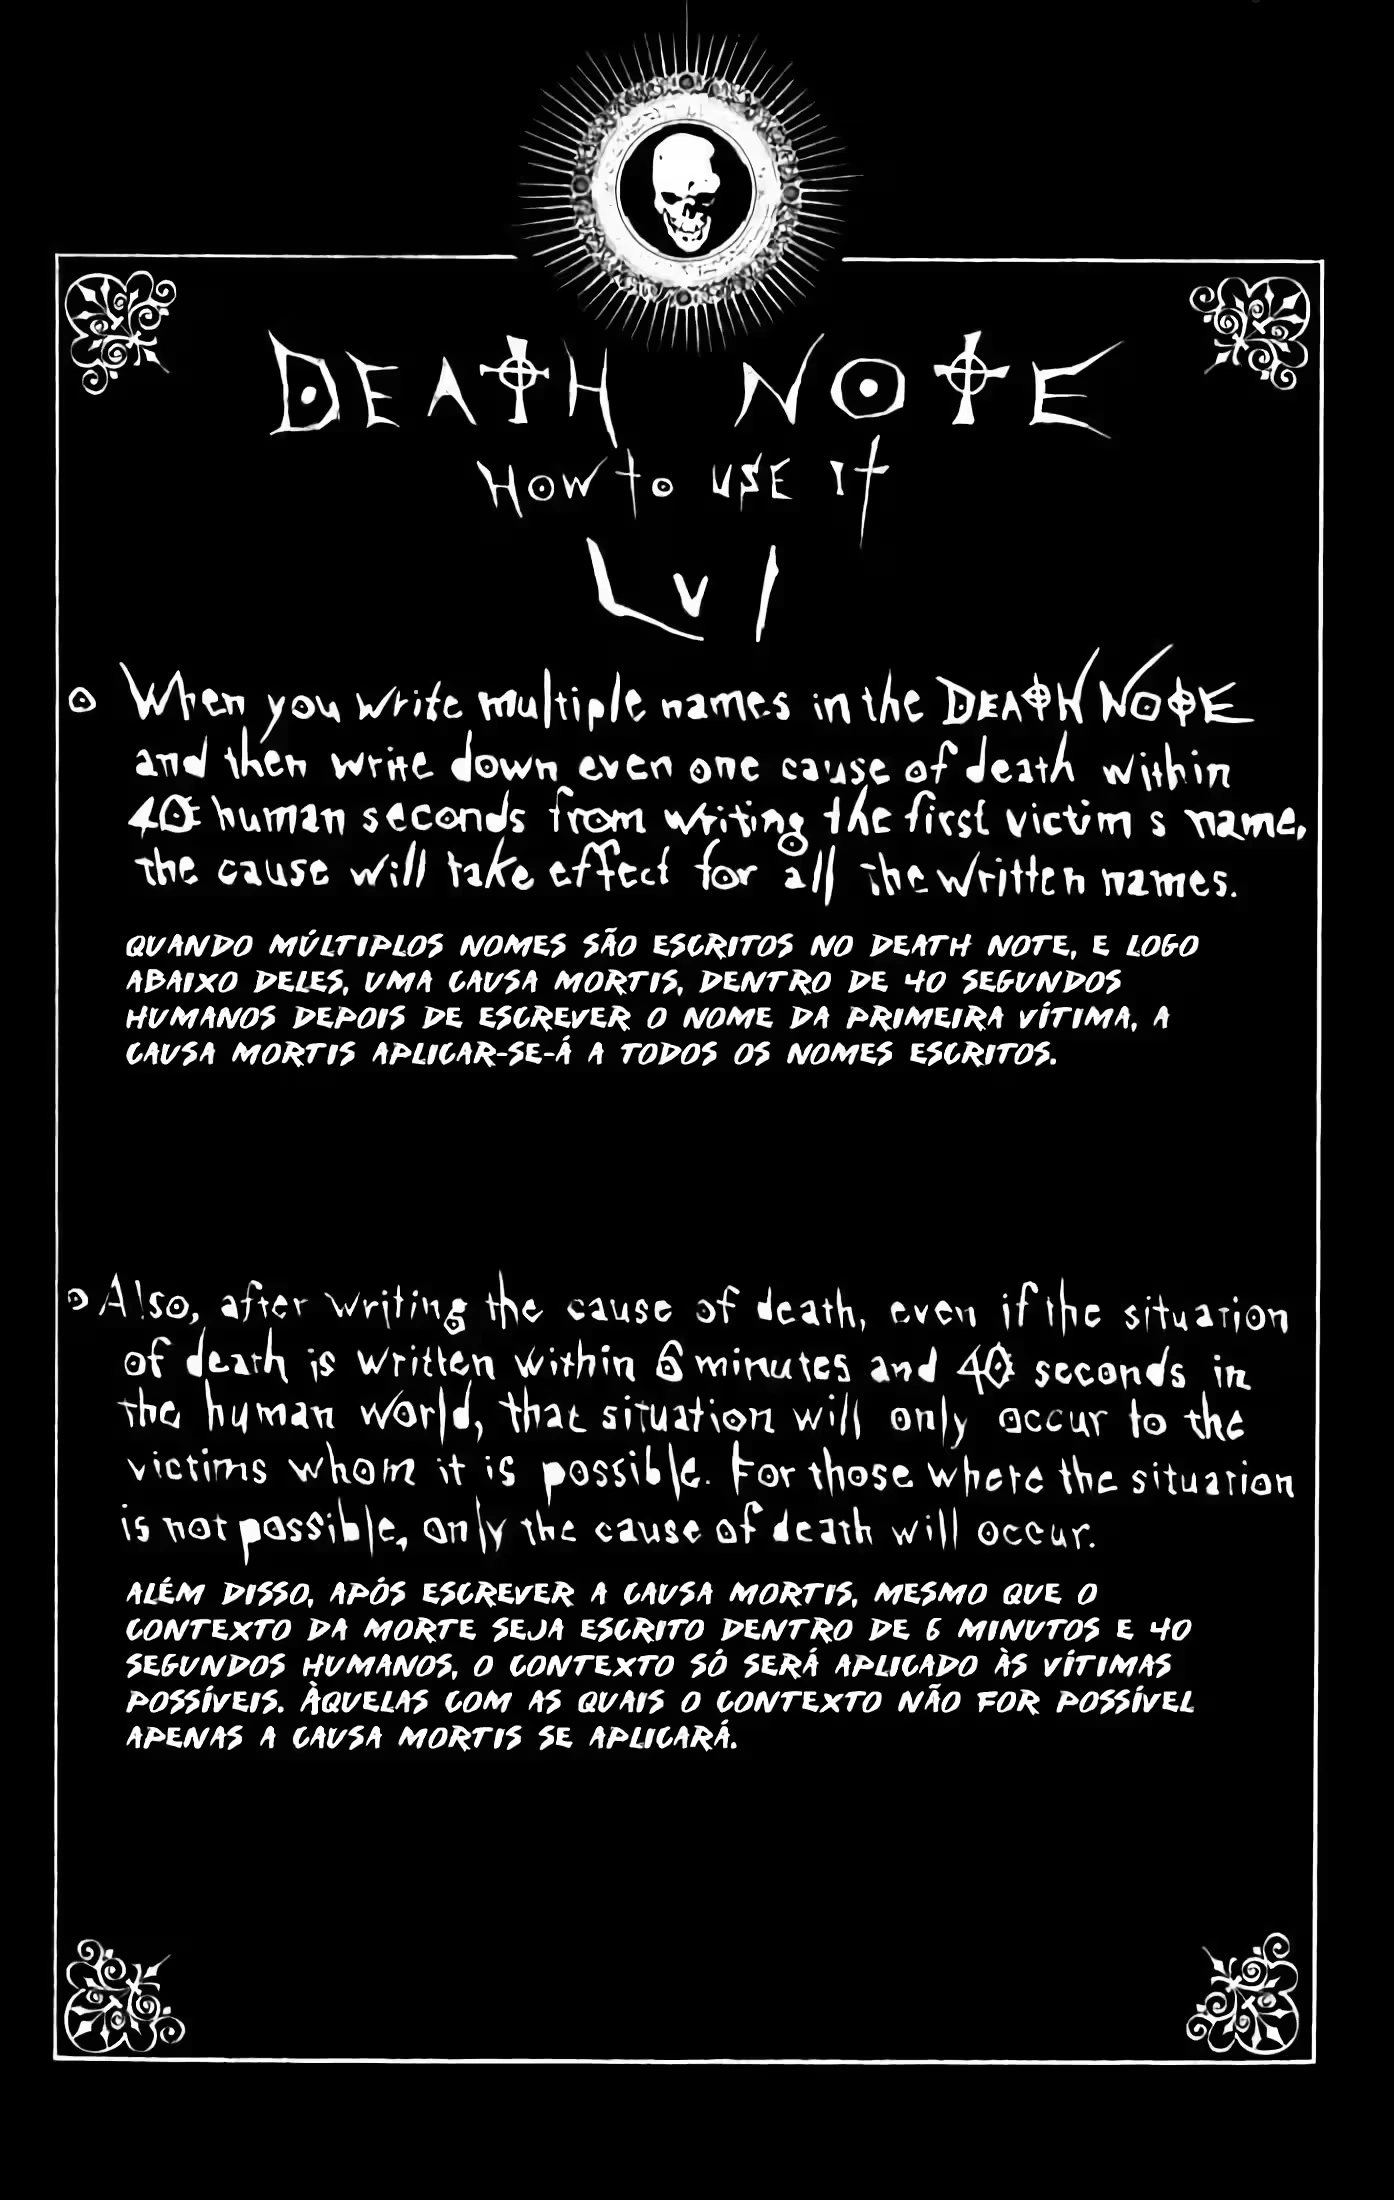 DEATH NOTE
HOW to USE It
Lv 1
When you write multiple names in the DEATH NOTE
and then write down even one cause of death within
40 human seconds from writing the first victim s name,
the cause will take effect for all the written names.
QUANDO MÚLTIPLOS NOMES SÃO ESCRITOS NO DEATH NOTE, E LOGO
ABAIXO DELES, UMA CAUSA MORTIS, DENTRO DE 40 SEGUNDOS
HUMANOS DEPOIS DE ESCREVER O NOME DA PRIMEIRA VÍTIMA, A
CAUSA MORTIS APLICAR-SE-Á A TODOS OS NOMES ESCRITOS.
Also, after writing the cause of death, even if the situation
of death is written within 6 minutes and 40 seconds in
the human world, that situation will only occur to the
victims whom it is possible. For those where the situation
is not possible, only the cause of death will occur.
ALÉM DISSO, APÓS ESCREVER A CAUSA MORTIS, MESMO QUE O
CONTEXTO DA MORTE SEJA ESCRITO DENTRO DE 6 MINUTOS E 40
SEGUNDOS HUMANOS, O CONTEXTO SÓ SERÁ APLICADO ÀS VÍTIMAS
POSSÍVEIS. ÀQUELAS COM AS QUAIS O CONTEXTO NÃO FOR POSSÍVEL
APENAS A CAUSA MORTIS SE APLICARÁ.